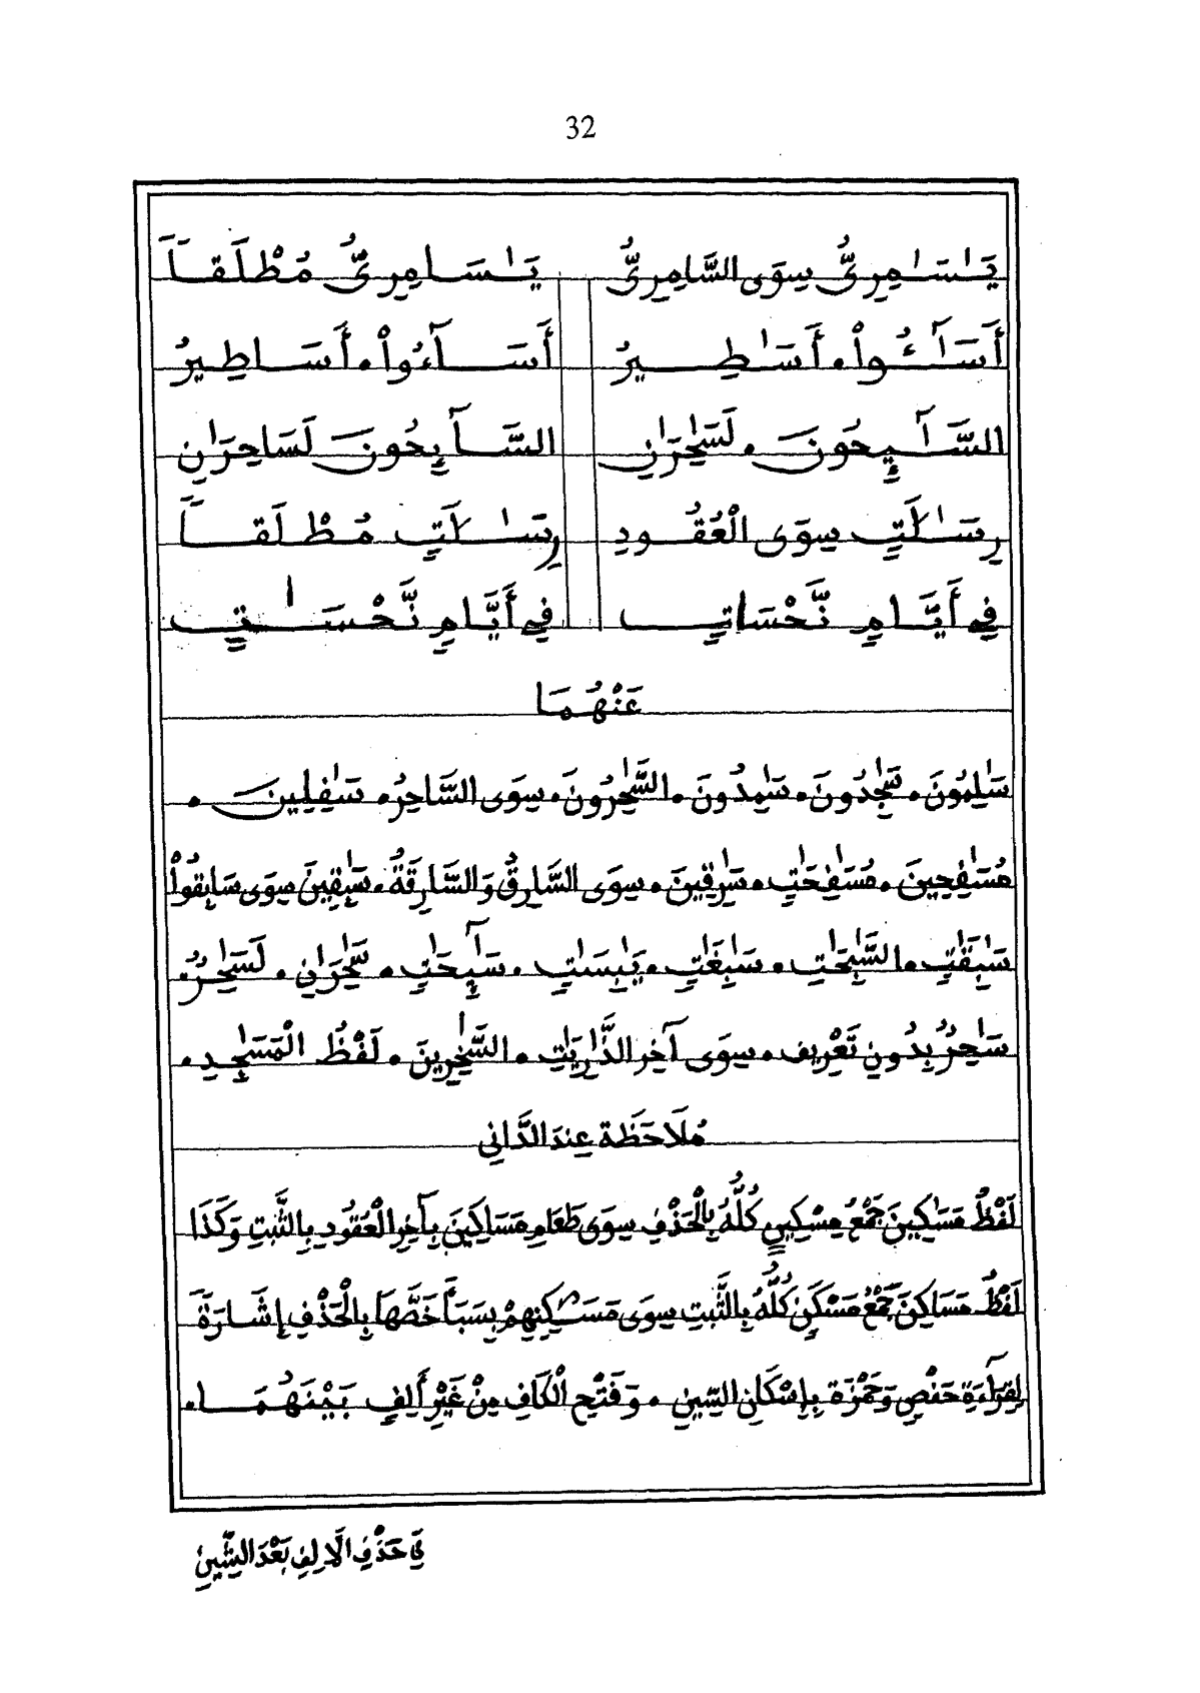 32
يَٰسَٰمِرِيُّ سِوَى السَّامِرِيُّ يَٰسَامِرِيُّ مُطْلَقاً
أَسَٰٓـُٔواْ . أَسَٰطِيرُ أَسَآءُواْ . أَسَاطِيرُ
السَّٰٓئِحُونَ . لَسَٰحِرَٰنِ السَّآئِحُونَ لَسَاحِرَٰنِ
رِسَٰلَتِ سِوَى الْعُقُودِ رِسَٰلَتِ مُطْلَقاً
فِي أَيَّامٍ نَّحْسَاتٍ فِي أَيَّامٍ نَّحْسَٰتٍ
عَنْهُمَا
سَٰلِمُونَ . سَٰجِدُونَ . سَٰمِدُونَ . السَّٰحِرُونَ . سِوَى السَّاحِرُ . سَٰفِلِينَ .
مُسَٰفِحِينَ . مُسَٰفِحَٰتٍ . سَٰرِقِينَ . سِوَى السَّارِقُ وَالسَّارِقَةُ . سَٰبِقِينَ سِوَى سَابِقُواْ
سَٰبِقَٰتٍ . السَّٰبِحَٰتِ . سَٰبِغَٰتٍ . يَابِسَٰتٍ . سَٰٓئِحَٰتٍ . سَٰحِرَٰنِ . لَسَٰحِرٌ .
سَٰحِرٌ بِدُونِ تَعْرِيفٍ . سِوَى آخِرِ الذَّٰرِيَٰتِ . السَّٰخِرِينَ . لَفْظُ الْمَسَٰجِدِ .
مُلَاحَظَة عِندَ الدَّانِي
لَفْظُ مَسَٰكِينَ جَمْعُ مِسْكِينٍ كُلُّهُ بِالْحَذْفِ سِوَى طَعَامِ مَسَاكِينَ بِآخِرِ الْعُقُودِ بِالثَّبتِ وَكَذَا
لَفْظُ مَسَاكِنَ جَمْعُ مَسْكَنٍ كُلُّهُ بِالثَّبتِ سِوَى مَسَٰكِنِهِمْ بِسَبَأ خَصَّهَا بِالْحَذْفِ إِشَارَةً
لِقِرَآءَةِ حَفْصٍ وَحَمْزَة بِإِسْكَانِ السِّينِ . وَفَتْحِ الْكَافِ مِنْ غَيْرِ أَلِفٍ بَيْنَهُمَا .
فِي حَذْفِ الَالِفِ بَعْدَ الشِّينِ